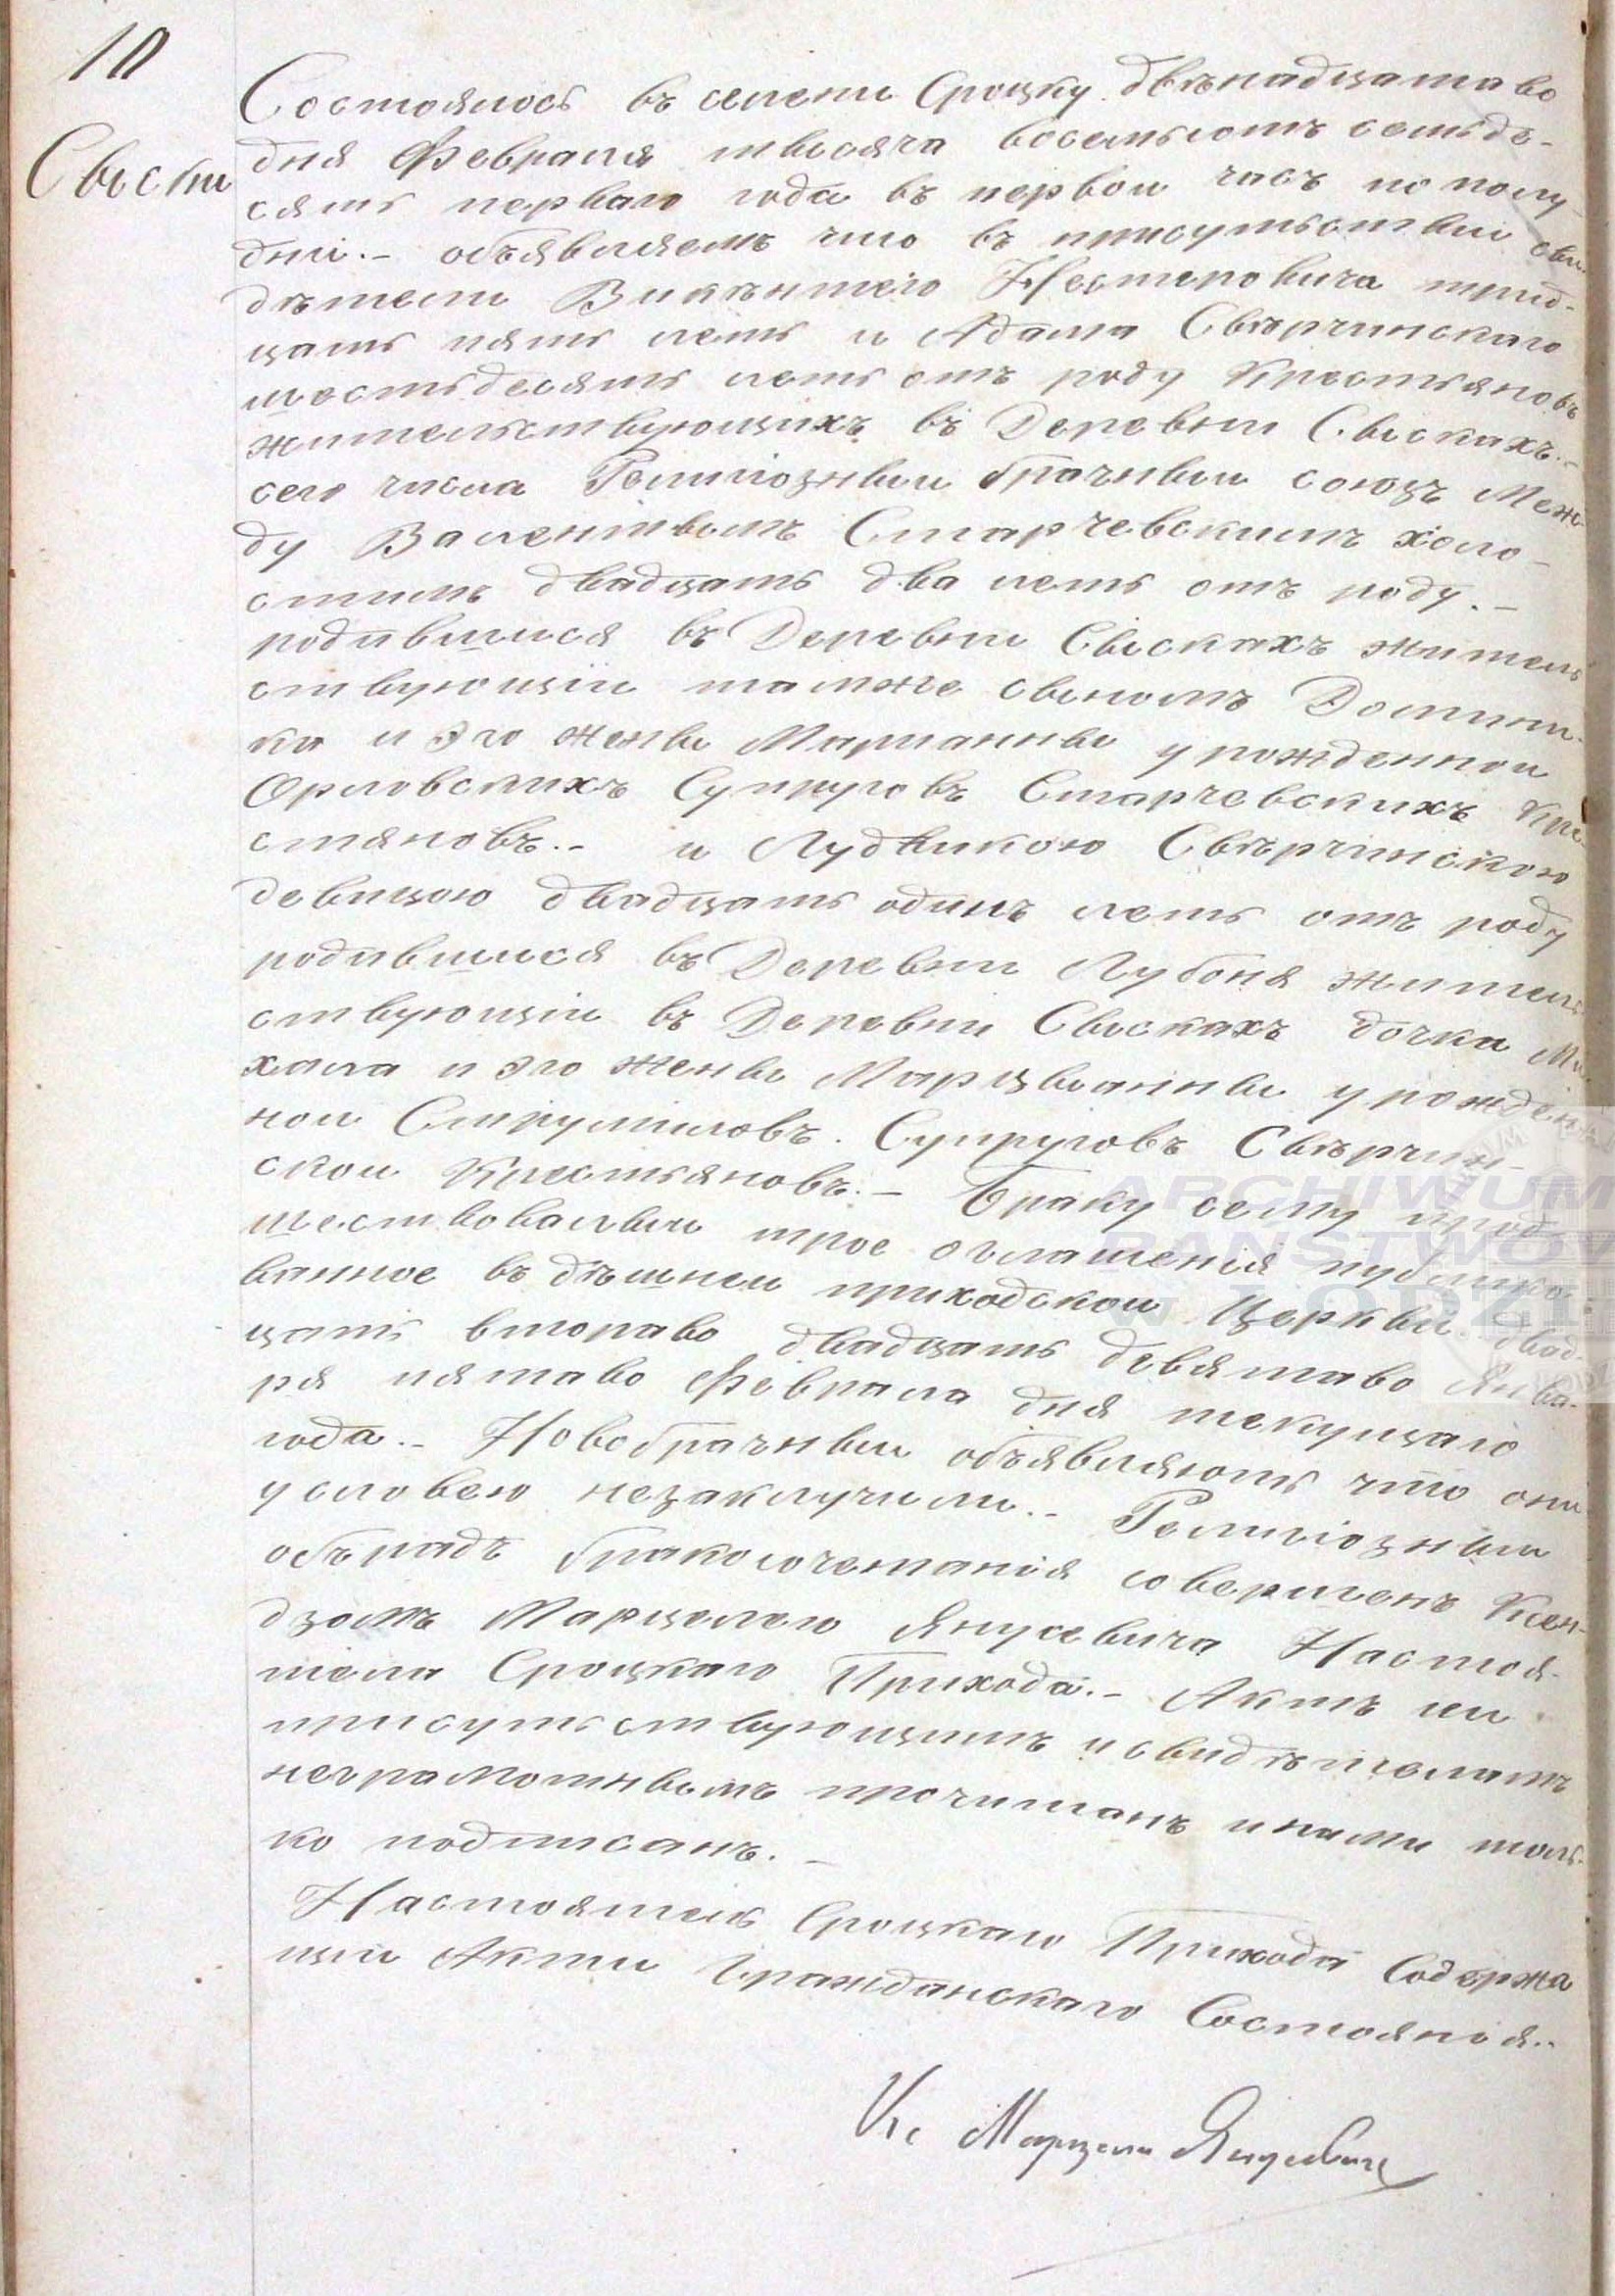 10
Свыски
Состоялось въ селени Сроцку двѣнадцатаво
дня Февраля тысяча восемьсотъ семьде-
сять перваго года въ первои часъ по полу-
дни.- объявляемъ что въ присутьствыи сви-
дѣтели Викѣнтего Нестеровича трид-
цать пять леть и Адама Свѣрчинскаго
шестьдесять леть отъ роду Крестьяновъ
жительствующихъ въ Деревни Свыскахъ.-
сего числа Религіозныи брачныи союзъ Меж-
ду Валентымъ Старчевскимъ холо-
стимъ двадцать два леть отъ роду.-
родившися въ Деревни Свыскахъ житель
ствующіи тамже сыномъ Домини-
ка и эго жены Марианны урожденнои
Орловскихъ Супруговъ Старчевскихъ Кре-
стяновъ.- и Лудвикою Свѣрчинскою
девицою двадцать одинъ леть отъ роду
родившися въ Деревни Лубоня житель
ствующіи въ Деревни Свыскахъ дочка Ми-
хала и эго жены Марцыанны урожден-
нои Струміловъ. Супруговъ Свѣрчин-
скои Крестьяновъ.- Браку сему пред
шествовалыи трое оглашенія публико-
ванное въ дѣшнеи приходскои Церквы двад-
цать втораво двадцать девятаво Янва-
ря пятаво Феврала дня текущаго
года.- Новобрачныи объявляють что они
условею незаключили.- Религіозныи
обърадъ бракосочетанія совершенъ Ксен-
дзомъ Марцелего Янусевича Настоя-
тели Сроцкаго Прихода.- Актъ сеи
присутьствующимъ и свидѣтелямъ
неграмотнымъ прочитанъ и нами толь-
ко подписанъ.-
Настоятель Сроцкаго Прихода Содержа
щіи Акти Гражданскаго Состоянія..
Кс Марцели Янусевичъ
ARCHIWUM
PAŃSTWOW
W ŁODZI